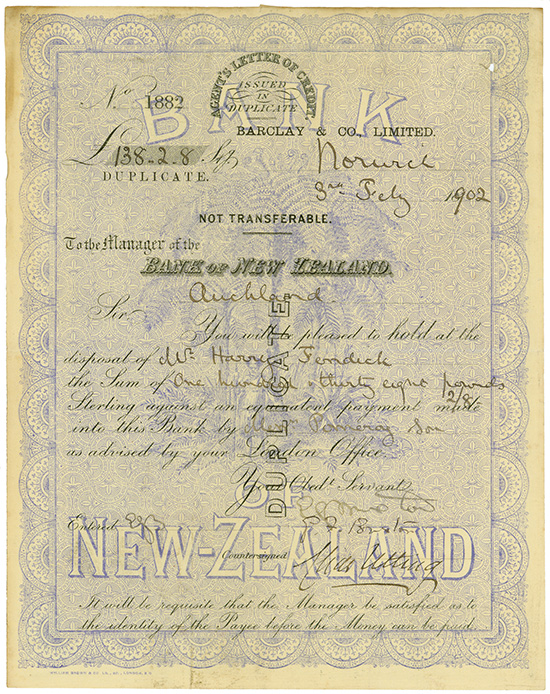 AGENT'S LETTER OF CREDIT.
ISSUED
IN
DUPLICATE
BANK
No 1882
BARCLAY & CO., LIMITED.
£138-2-8 Stg
Norwich
DUPLICATE.
3rd Feby 1902
NOT TRANSFERABLE.
To the Manager of the
BANK OF NEW ZEALAND.
Auckland.
Sir
You will be pleased to hold at the
disposal of Mr. Harry
the Sum of One hundred & thirty eight pounds
2/8
Sterling against an equivalent payment made
into this Bank by Pomeroy & Son
as advised by your London Office
Your Obedt. Servant
DUPLICATE
OF
Entered
NEW-ZEALAND
Countersigned
It will be requisite that the Manager be satisfied as to
the identity of the Payee before the Money can be paid.